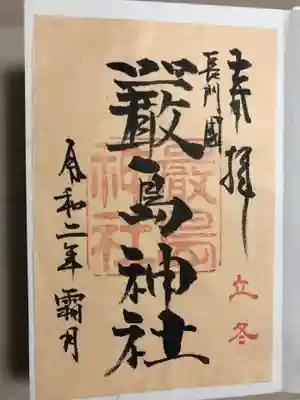 奉拝
長門國
厳島神社
令和二年 霜月
立冬
厳島
神社